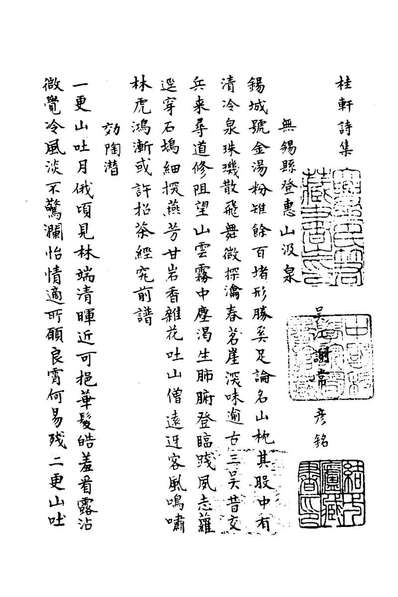 桂軒詩集
吳江謝常彦銘
無錫縣登惠山汲泉
錫城號金湯粉雉餘百堵形勝奚足論名山枕其股中有
清冷泉珠璣散飛舞微探瀹春茗崖淡味逾古三吴昔交
兵来尋道修阻望山雲霧中塵渴生肺腑登臨踐夙志蘿
逕穿石塢細撥燕芳甘岩香雜花吐山僧遠迓客風鳴嘯
林虎鴻漸或許招茶經究前譜
効陶潜
一更山吐月俄頃見林端清暉近可挹華髮皓羞看露沾
微覺冷風淡不驚瀾怡情適所願良霄何易残二更山吐